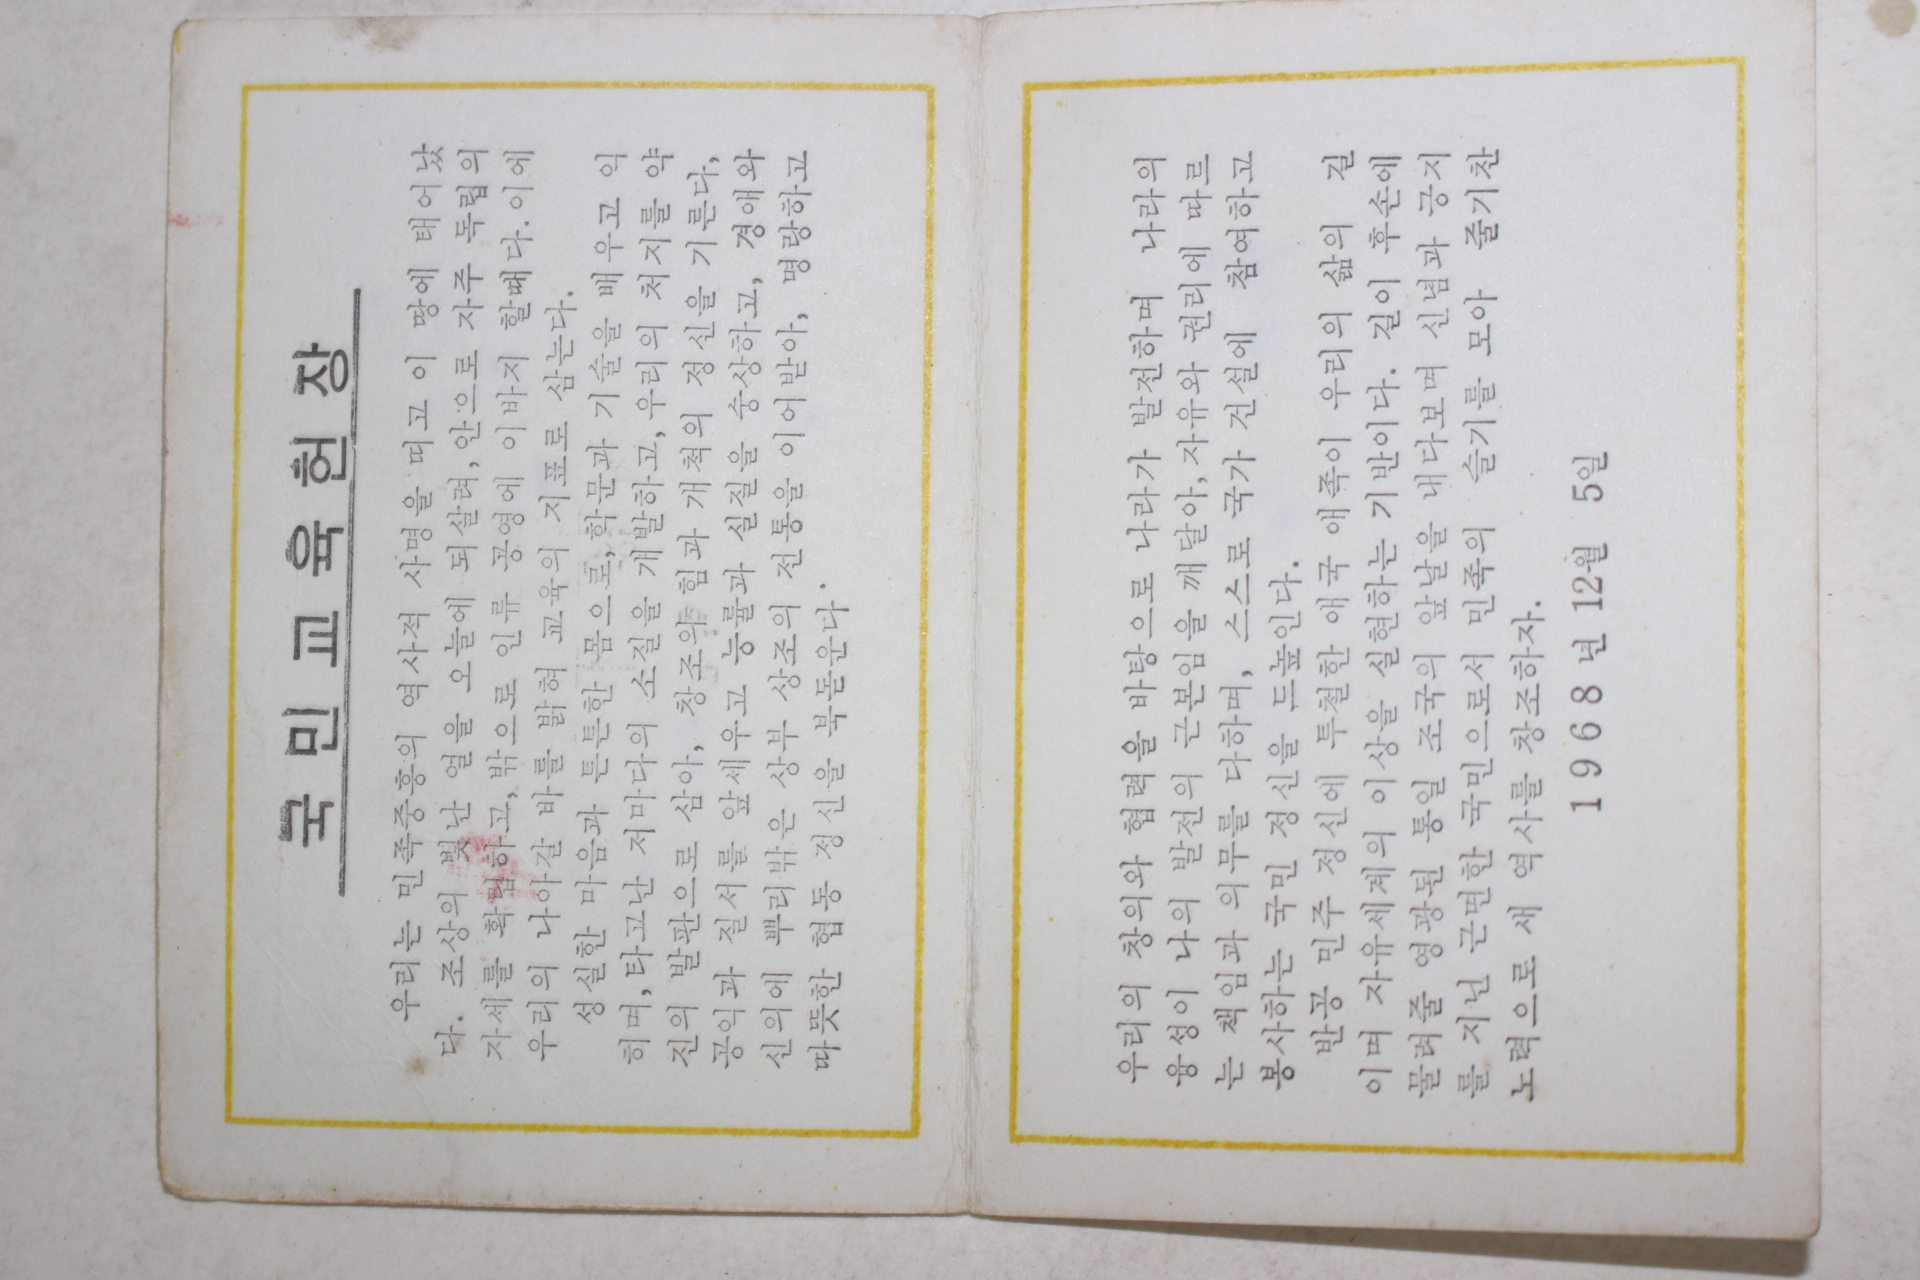 국민교육헌장
우리는 민족중흥의 역사적 사명을 띠고 이 땅에 태어났
다. 조상의 빛난 얼을 오늘에 되살려, 안으로 자주 독립의
자세를 확립하고, 밖으로 인류 공영에 이바지 할때다. 이에
우리의 나아갈 바를 밝혀 교육의 지표로 삼는다.
성실한 마음과 튼튼한 몸으로, 학문과 기술을 배우고 익
히며, 타고난 저마다의 소질을 개발하고, 우리의 처지를 약
진의 발판으로 삼아, 창조의 힘과 개척의 정신을 기른다,
공익과 질서를 앞세우고 능률과 실질을 숭상하고, 경애와
신의에 뿌리박은 상부 상조의 전통을 이어받아, 명랑하고
따뜻한 협동 정신을 북돋운다.
우리의 창의와 협력을 바탕으로 나라가 발전하며 나라의
융성이 나의 발전의 근본임을 깨달아, 자유와 권리에 따르
는 책임과 의무를 다하며, 스스로 국가 건설에 참여하고
봉사하는 국민 정신을 드높인다.
반공 민주 정신에 투철한 애국 애족이 우리의 삶의 길
이며 자유세계의 이상을 실현하는 기반이다. 길이 후손에
물려줄 영광된 통일 조국의 앞날을 내다보며 신념과 긍지
를 지닌 근면한 국민으로서 민족의 슬기를 모아 줄기찬
노력으로 새 역사를 창조하자.
1968년 12월 5일